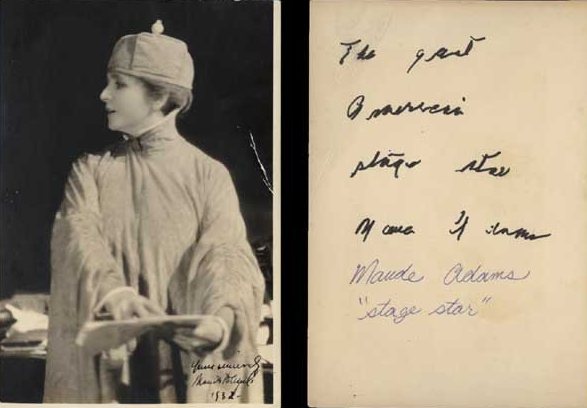 yours sincerely
1932-
The great
American
stage star
Maude Adams
Maude Adams
"stage star"